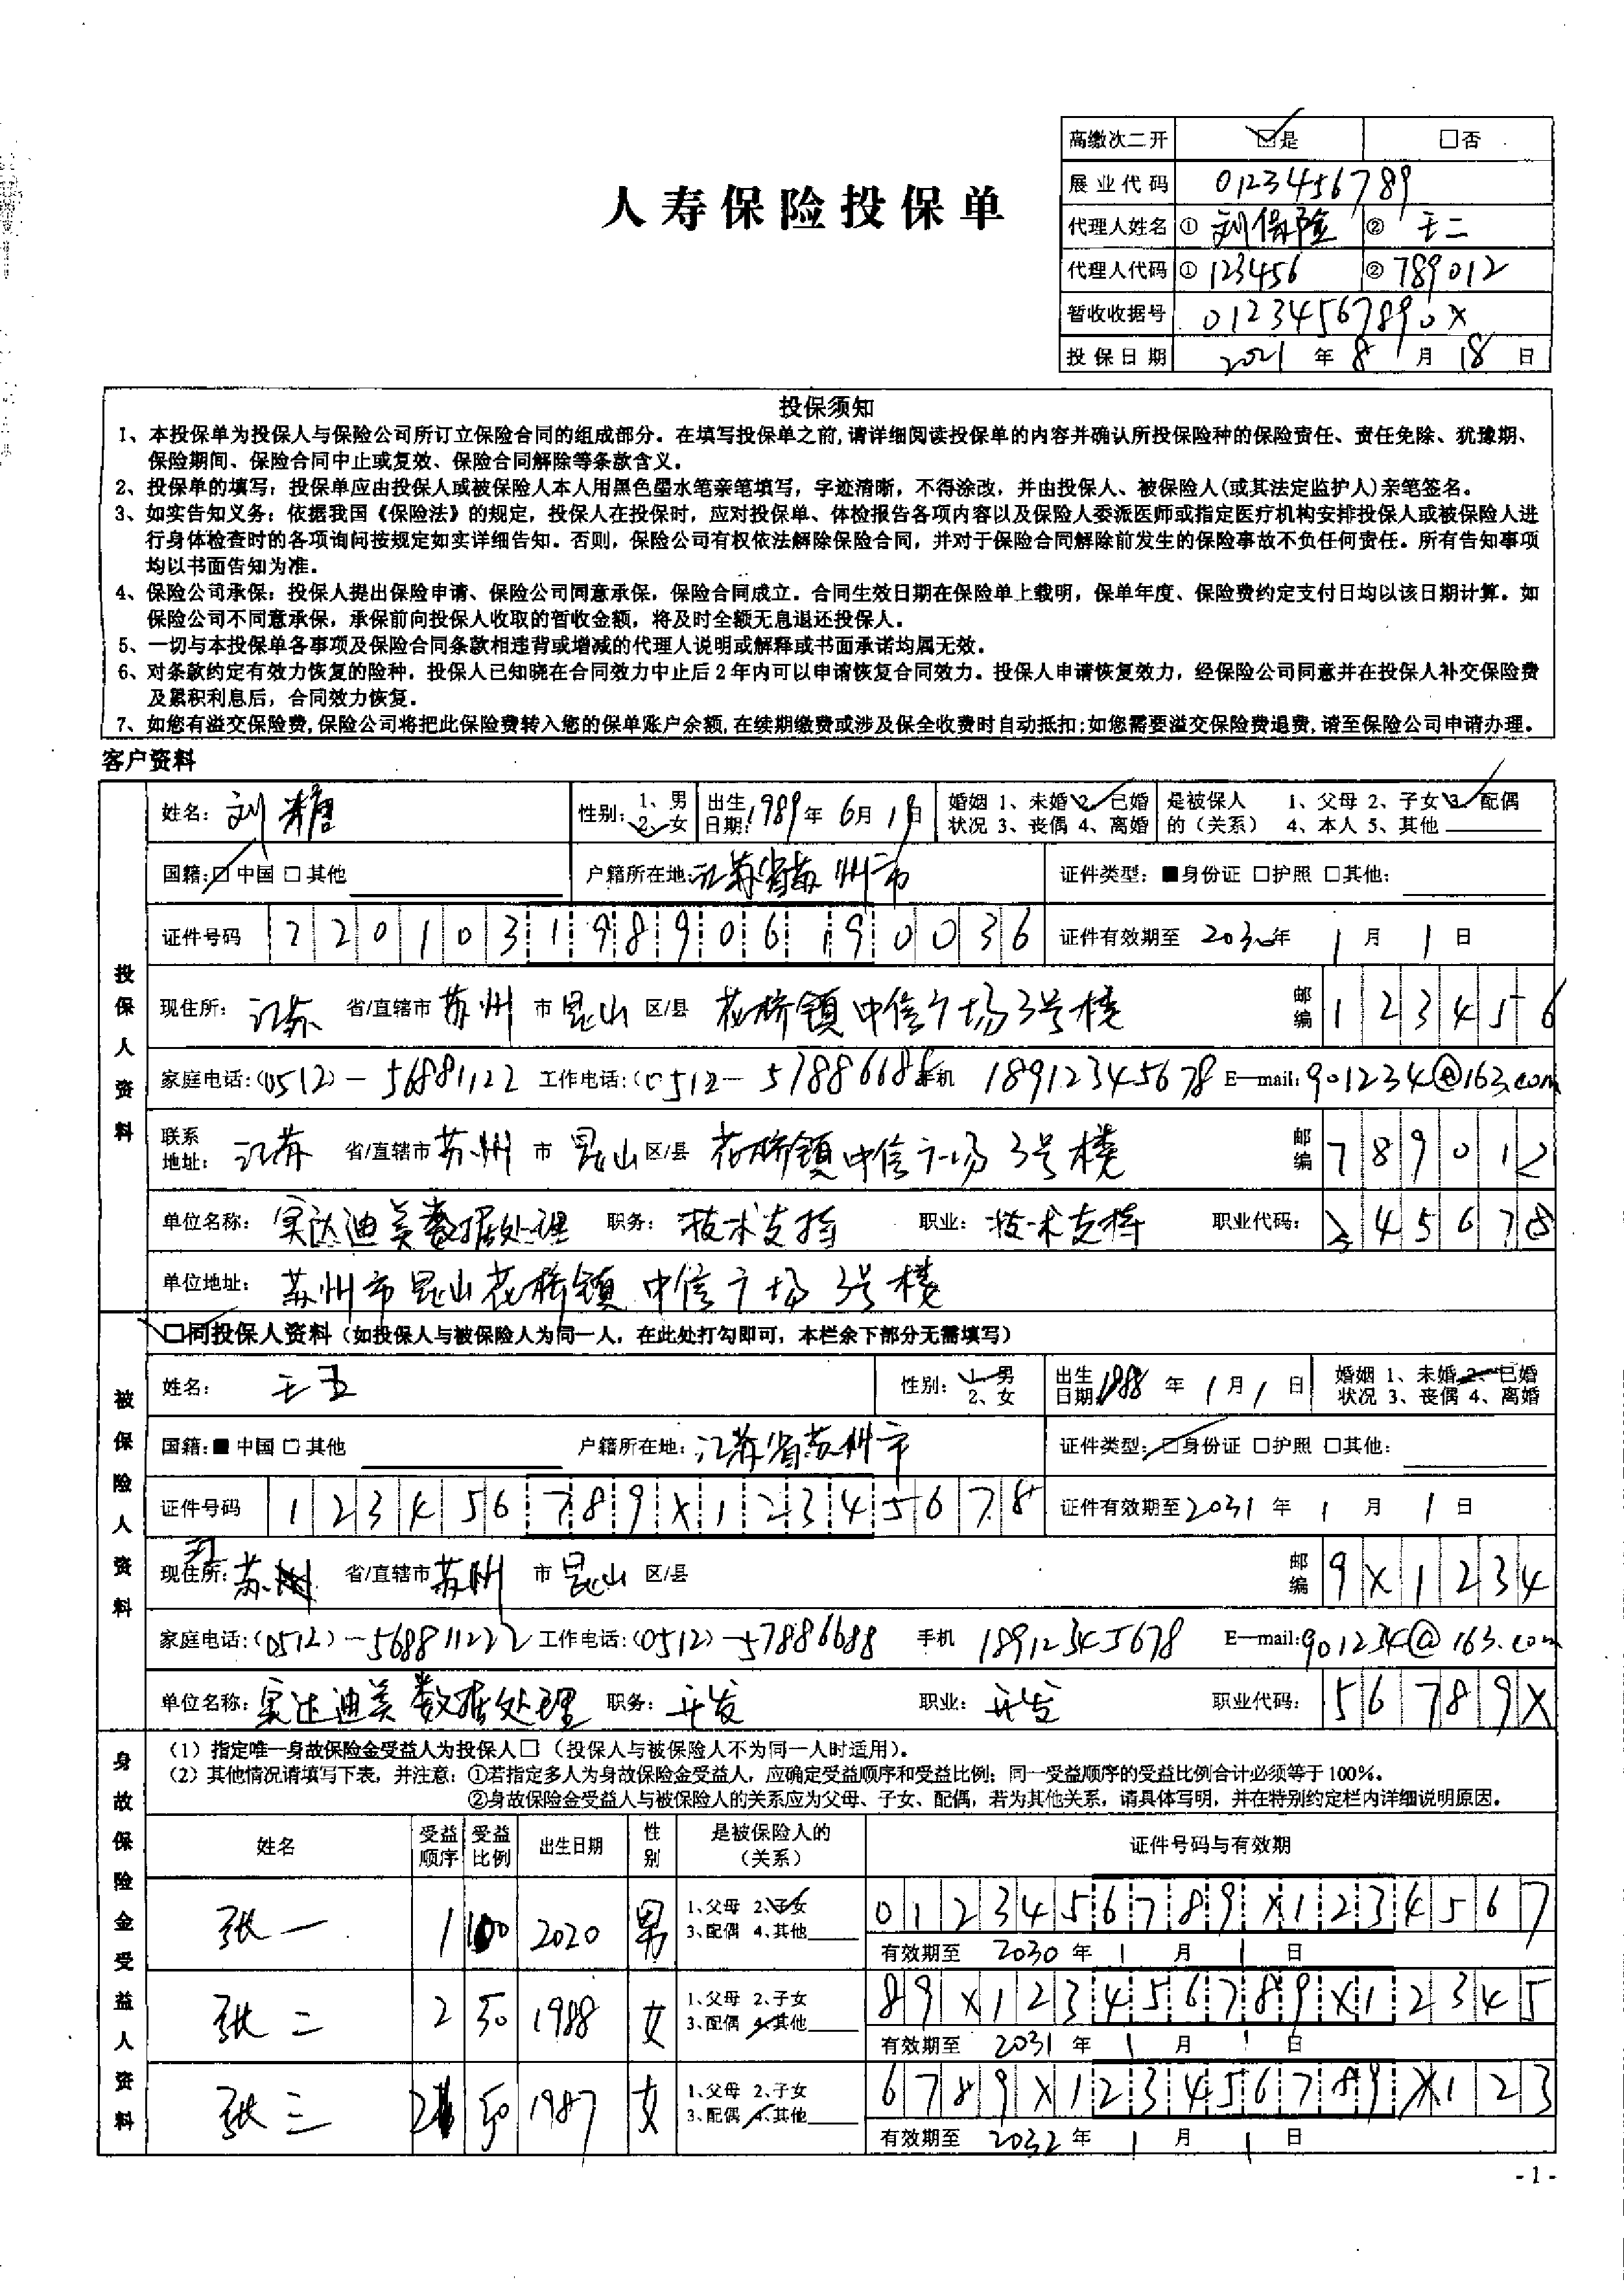 高缴次二开 ☑是 □否
人寿保险投保单
展业代码 0123456789
代理人姓名 ① 刘保险 ② 王二
代理人代码 ① 123456 ② 789012
暂收收据号 01234567890X
投保日期 2021 年 8 月 18 日
投保须知
1、本投保单为投保人与保险公司所订立保险合同的组成部分。在填写投保单之前,请详细阅读投保单的内容并确认所投保险种的保险责任、责任免除、犹豫期、
保险期间、保险合同中止或复效、保险合同解除等条款含义。
2、投保单的填写：投保单应由投保人或被保险人本人用黑色墨水笔亲笔填写，字迹清晰，不得涂改，并由投保人、被保险人(或其法定监护人)亲笔签名。
3、如实告知义务：依据我国《保险法》的规定，投保人在投保时，应对投保单、体检报告各项内容以及保险人委派医师或指定医疗机构安排投保人或被保险人进
行身体检查时的各项询问按规定如实详细告知。否则，保险公司有权依法解除保险合同，并对于保险合同解除前发生的保险事故不负任何责任。所有告知事项
均以书面告知为准。
4、保险公司承保：投保人提出保险申请、保险公司同意承保，保险合同成立。合同生效日期在保险单上载明，保单年度、保险费约定支付日均以该日期计算。如
保险公司不同意承保，承保前向投保人收取的暂收金额，将及时全额无息退还投保人。
5、一切与本投保单各事项及保险合同条款相违背或增减的代理人说明或解释或书面承诺均属无效。
6、对条款约定有效力恢复的险种，投保人已知晓在合同效力中止后2年内可以申请恢复合同效力。投保人申请恢复效力，经保险公司同意并在投保人补交保险费
及累积利息后，合同效力恢复。
7、如您有溢交保险费,保险公司将把此保险费转入您的保单账户余额,在续期缴费或涉及保全收费时自动抵扣;如您需要溢交保险费退费,请至保险公司申请办理。
客户资料
投保人资料
姓名: 刘 性别: 1、男 2、女 出生日期: 1989 年 6 月 19 日 婚姻状况 1、未婚 2、已婚 3、丧偶 4、离婚 是被保人的（关系） 1、父母 2、子女 3、配偶 4、本人 5、其他
国籍: □中国 □其他 户籍所在地: 江苏省苏州市 证件类型: ■身份证 □护照 □其他:
证件号码 220103198906190036 证件有效期至 2030 年 1 月 1 日
现住所: 江苏 省/直辖市 苏州 市 昆山 区/县 花桥镇中信广场3号楼 邮编 123456
家庭电话: (0512)-56881122 工作电话: (0512-57886688 手机 18912345678 E-mail: 901234@163.com
联系地址: 江苏 省/直辖市 苏州 市 昆山 区/县 花桥镇中信广场 3号楼 邮编 789012
单位名称: 实达迪美数据处理 职务: 技术支持 职业: 技术支持 职业代码: 345678
单位地址: 苏州市昆山花桥镇 中信广场 3号楼
被保险人资料
□同投保人资料（如投保人与被保险人为同一人，在此处打勾即可，本栏余下部分无需填写）
姓名: 王五 性别: 1、男 2、女 出生日期: 1988 年 1 月 1 日 婚姻状况 1、未婚 2、已婚 3、丧偶 4、离婚
国籍: ■中国 □其他 户籍所在地: 江苏省苏州市 证件类型: □身份证 □护照 □其他:
证件号码 123456789X12345678 证件有效期至 2031 年 1 月 1 日
现住所: 江苏 省/直辖市 苏州 市 昆山 区/县 邮编 9X1234
家庭电话: (0512)-568811222 工作电话: (0512)-57886688 手机 18912345678 E-mail: 901234@163.com
单位名称: 实达迪美数据处理 职务: 开发 职业: 开发 职业代码: 56789X
身故保险金受益人资料
（1）指定唯一身故保险金受益人为投保人□（投保人与被保险人不为同一人时适用）。
（2）其他情况请填写下表，并注意：①若指定多人为身故保险金受益人，应确定受益顺序和受益比例；同一受益顺序的受益比例合计必须等于100%。
②身故保险金受益人与被保险人的关系应为父母、子女、配偶，若为其他关系，请具体写明，并在特别约定栏内详细说明原因。
姓名 受益顺序 受益比例 出生日期 性别 是被保险人的（关系） 证件号码与有效期
张一 1 100 2020 男 1、父母 2、子女 3、配偶 4、其他 0123456789X1234567
有效期至 2030 年 1 月 1 日
张二 2 50 1988 女 1、父母 2、子女 3、配偶 4、其他 89X123456789X12345
有效期至 2031 年 1 月 1 日
张三 2 50 1987 女 1、父母 2、子女 3、配偶 4、其他 6789X123456789X123
有效期至 2032 年 1 月 1 日
- 1 -